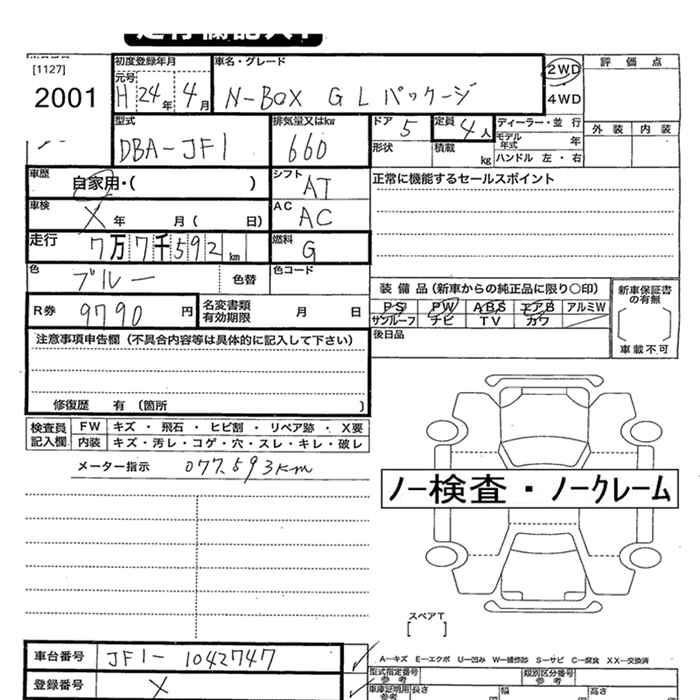 [1127]
2001
初度登録年月
元号
H 24年 4月
車名・グレード
N-BOX G Lパッケージ
2WD
4WD
評価点
外装 内装
型式
DBA-JF1
排気量又はkw
660
ドア 5
形状
定員 4人
積載 kg
ディーラー・並行
モデル年式 年
ハンドル 左・右
車歴
自家用・( )
シフト
AT
正常に機能するセールスポイント
車検
X 年 月( 日)
AC
AC
走行
7万7千592km
燃料
G
色
ブルー
色替
色コード
装備品(新車からの純正品に限り○印)
PS PW ABS エアB アルミW
サンルーフ ナビ TV カワ
後日品
新車保証書の有無
車載不可
R券 9790 円
名変書類有効期限 月 日
注意事項申告欄(不具合内容等は具体的に記入して下さい)
修復歴 有(箇所 )
検査員記入欄
FW キズ・飛石・ヒビ割・リペア跡・X要
内装 キズ・汚レ・コゲ・穴・スレ・キレ・破レ
メーター指示 077,593km
ノー検査・ノークレーム
スペアT
[ ]
車台番号 JF1-1042747
登録番号 X
A―キズ E―エクボ U―凹み W―補修跡 S―サビ C―腐食 XX―交換済
型式指定番号
参考
類別区分番号
参考
車庫証明用
参考
長さ 幅 高さ